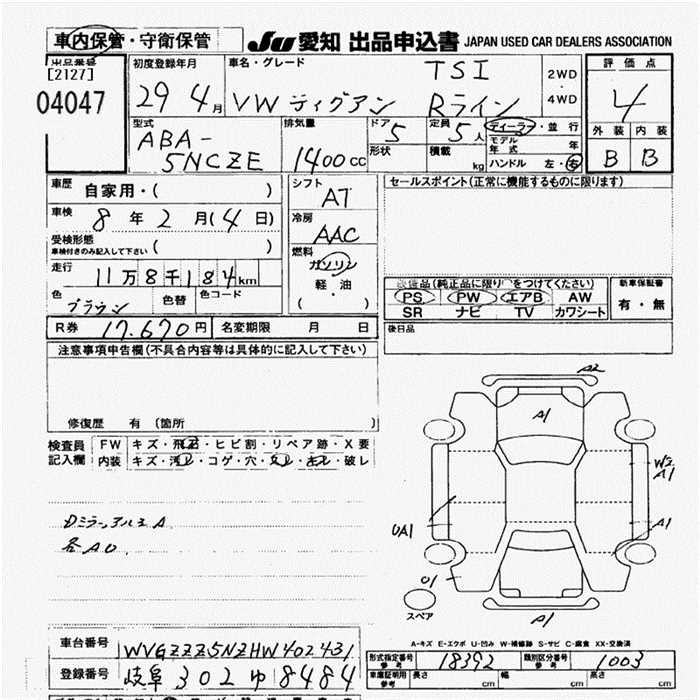 車内保管・守衛保管
JU 愛知 出品申込書 JAPAN USED CAR DEALERS ASSOCIATION
出品番号
[2127]
04047
初度登録年月
29 4月
車名・グレード
TSI
VW ティグアン Rライン
2WD
・
4WD
評価点
4
外装 内装
B B
型式
ABA-
5NCZE
排気量
1400cc
ドア
5
形状
定員
5人
積載
kg
ディーラー・並行
モデル
年式 年
ハンドル 左・右
車歴
自家用・( )
車検 8年2月(4日)
受検形態
車検付きのみ記入して下さい ( )
走行
11万8千184km
色
ブラウン
色替
色コード
シフト
AT
冷房
AAC
燃料
ガソリン
軽・油
( )
セールスポイント(正常に機能するものに限ります)
装備品(純正品に限り○をつけてください)
PS PW エアB AW
SR ナビ TV カワシート
新車保証書
有・無
R券 17,670円
名変期限 月 日
後日品
注意事項申告欄(不具合内容等は具体的に記入して下さい)
修復歴 有 (箇所 )
検査員
記入欄
FW キズ・飛石・ヒビ割・リペア跡・X要
内装 キズ・汚レ・コゲ・穴・・・破レ
Dミラー、アルミA
各AU
A2
A1
W2
A1
UA1
A1
U1
スペア
A1
A-キズ E-エクボ U-凹み W-補修跡 S-サビ C-腐食 XX-交換済
車台番号 WVGZZZ5NZHW402431
登録番号 岐阜 302 ゆ 8484
型式指定番号
参考
18392
類別区分番号
参考
1003
車庫証明用
参考
長さ cm
幅 cm
高さ cm